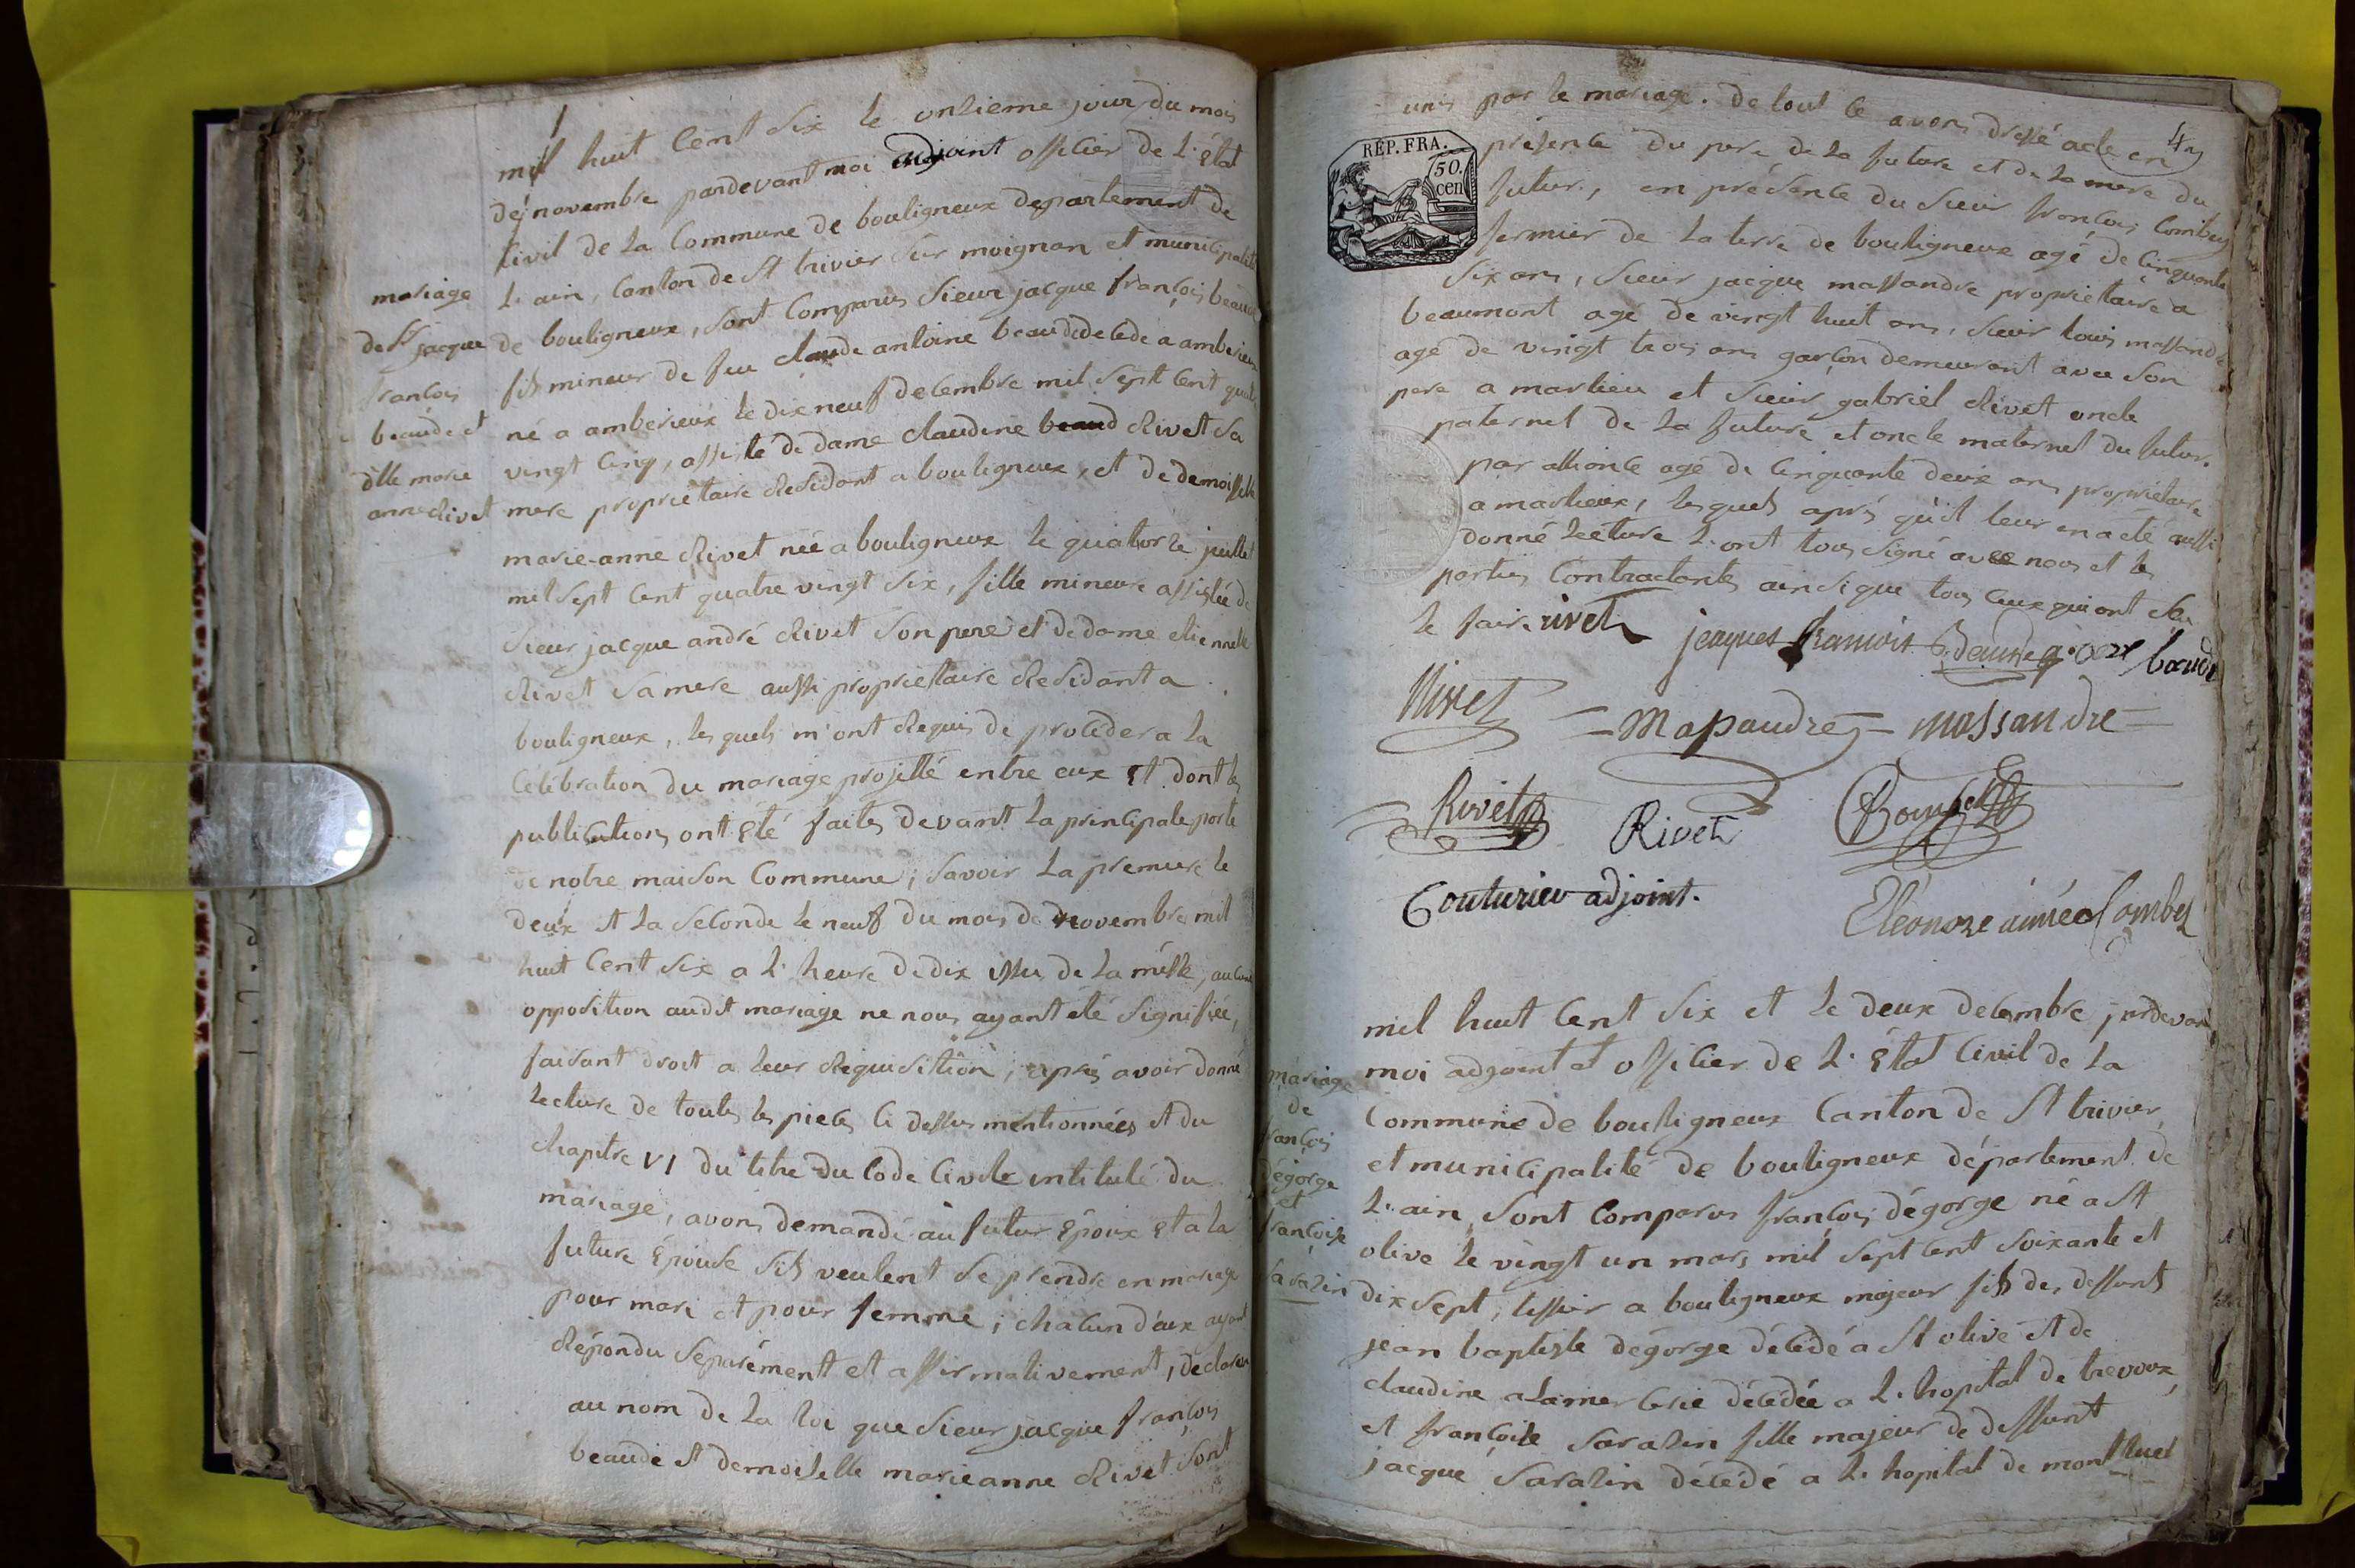 mil huit Cent Six le onzieme jour du mois
de novembre pardevant moi adjoint officier de L'état
Civil de La Commune de bouligneux departement de
L'ain, Canton de St trivier Sur moignan et municipalité
de bouligneux, Sont Comparus Sieur jacque françois beaude
fils mineur de feu claude antoine beaude décédé a amberieux
né a amberieux le dix neuf decembre mil Sept Cent quatre
vingt Cinq, assisté de dame claudine beaud Rivet Sa
mere propriétaire Residant a bouligneux, et de demoiselle
mariage
de Sr jacque
francois
beaude et
dlle marie
anne Rivet
marie-anne Rivet née a bouligneux le quatorze juillet
mil Sept Cent quatre vingt Six, fille mineure assistée de
Sieur jacque andré Rivet Son pere et de dame etiennette
Rivet Sa mere aussi propriétaire Residant a
bouligneux, lesquels m'ont Requis de proceder a la
Célébration du mariage projetté entre eux Et dont les
publications ont Eté faites devant La principale porte
de notre maison Commune; Savoir La premiere le
deux et La Seconde le neuf du mois de novembre mil
huit Cent Six a L'heure de dix issu de La messe, aucune
opposition audit mariage ne nous ayant été Signifiée,
faisant droit a leur Requisition, après avoir donné
Lecture de toutes les pieces Ci dessus mentionnées et du
chapitre VI du titre du Code Civile intitulé du
mariage, avons demandé au futur Epoux Et a la
future Epouse S'ils veulent Se prendre en mariage
pour mari et pour femme; chacun d'eux ayant
Répondu Séparément et affirmativement, declarons
au nom de La loi que Sieur jacque françois
beaude et demoiselle marie anne Rivet Sont
unis par le mariage. De tout Ce avons dressé acte en
présence du pere de La future et de La mere du
futur, en présence du Sieur françois Combey
fermier de La terre de bouligneux agé de Cinquante
Six ans, Sieur jacque massandre propriétaire a
beaumont agé de vingt huit ans, Sieur louis massandre
agé de vingt trois ans garçon demeurant avec Son
pere a marlieu et Sieur gabriel Rivet oncle
paternel de La future et oncle maternel du futur
par alliance agé de Cinquante deux ans propriétaire
a marlieux, lesquels après qu'il leur en a été aussi
donné Lecture L'ont tous Signé avec nous et les
parties Contractantes ainsi que tous Ceux qui ont Su
le faire rivet jeaques francois Beaude
RÉP. FRA.
50.
cen
Rivet Massandre massandre
Rivet Rivet
Couturier adjoint.
Eléonore aimée Combey
mil huit Cent Six et Le deux decembre pardevant
moi adjoint et officier de L'Etat Civil de La
Commune de bouligneux Canton de St trivier
et municipalité de bouligneux département de
L'ain, Sont Comparus françois dégorge né a St
olive le vingt un mars mil Sept Cent Soixante et
dix Sept, tissier a bouligneux majeur fils des deffunts
jean baptiste degorge décédé a St olive et de
claudine décédée a L'hopital de trevoux,
et françoise Sarazin fille majeur de deffunt
jacque Sarazin décédé a L'hopital de montluel
mariage
de
françois
dégorge
et
françoise
Sarazin